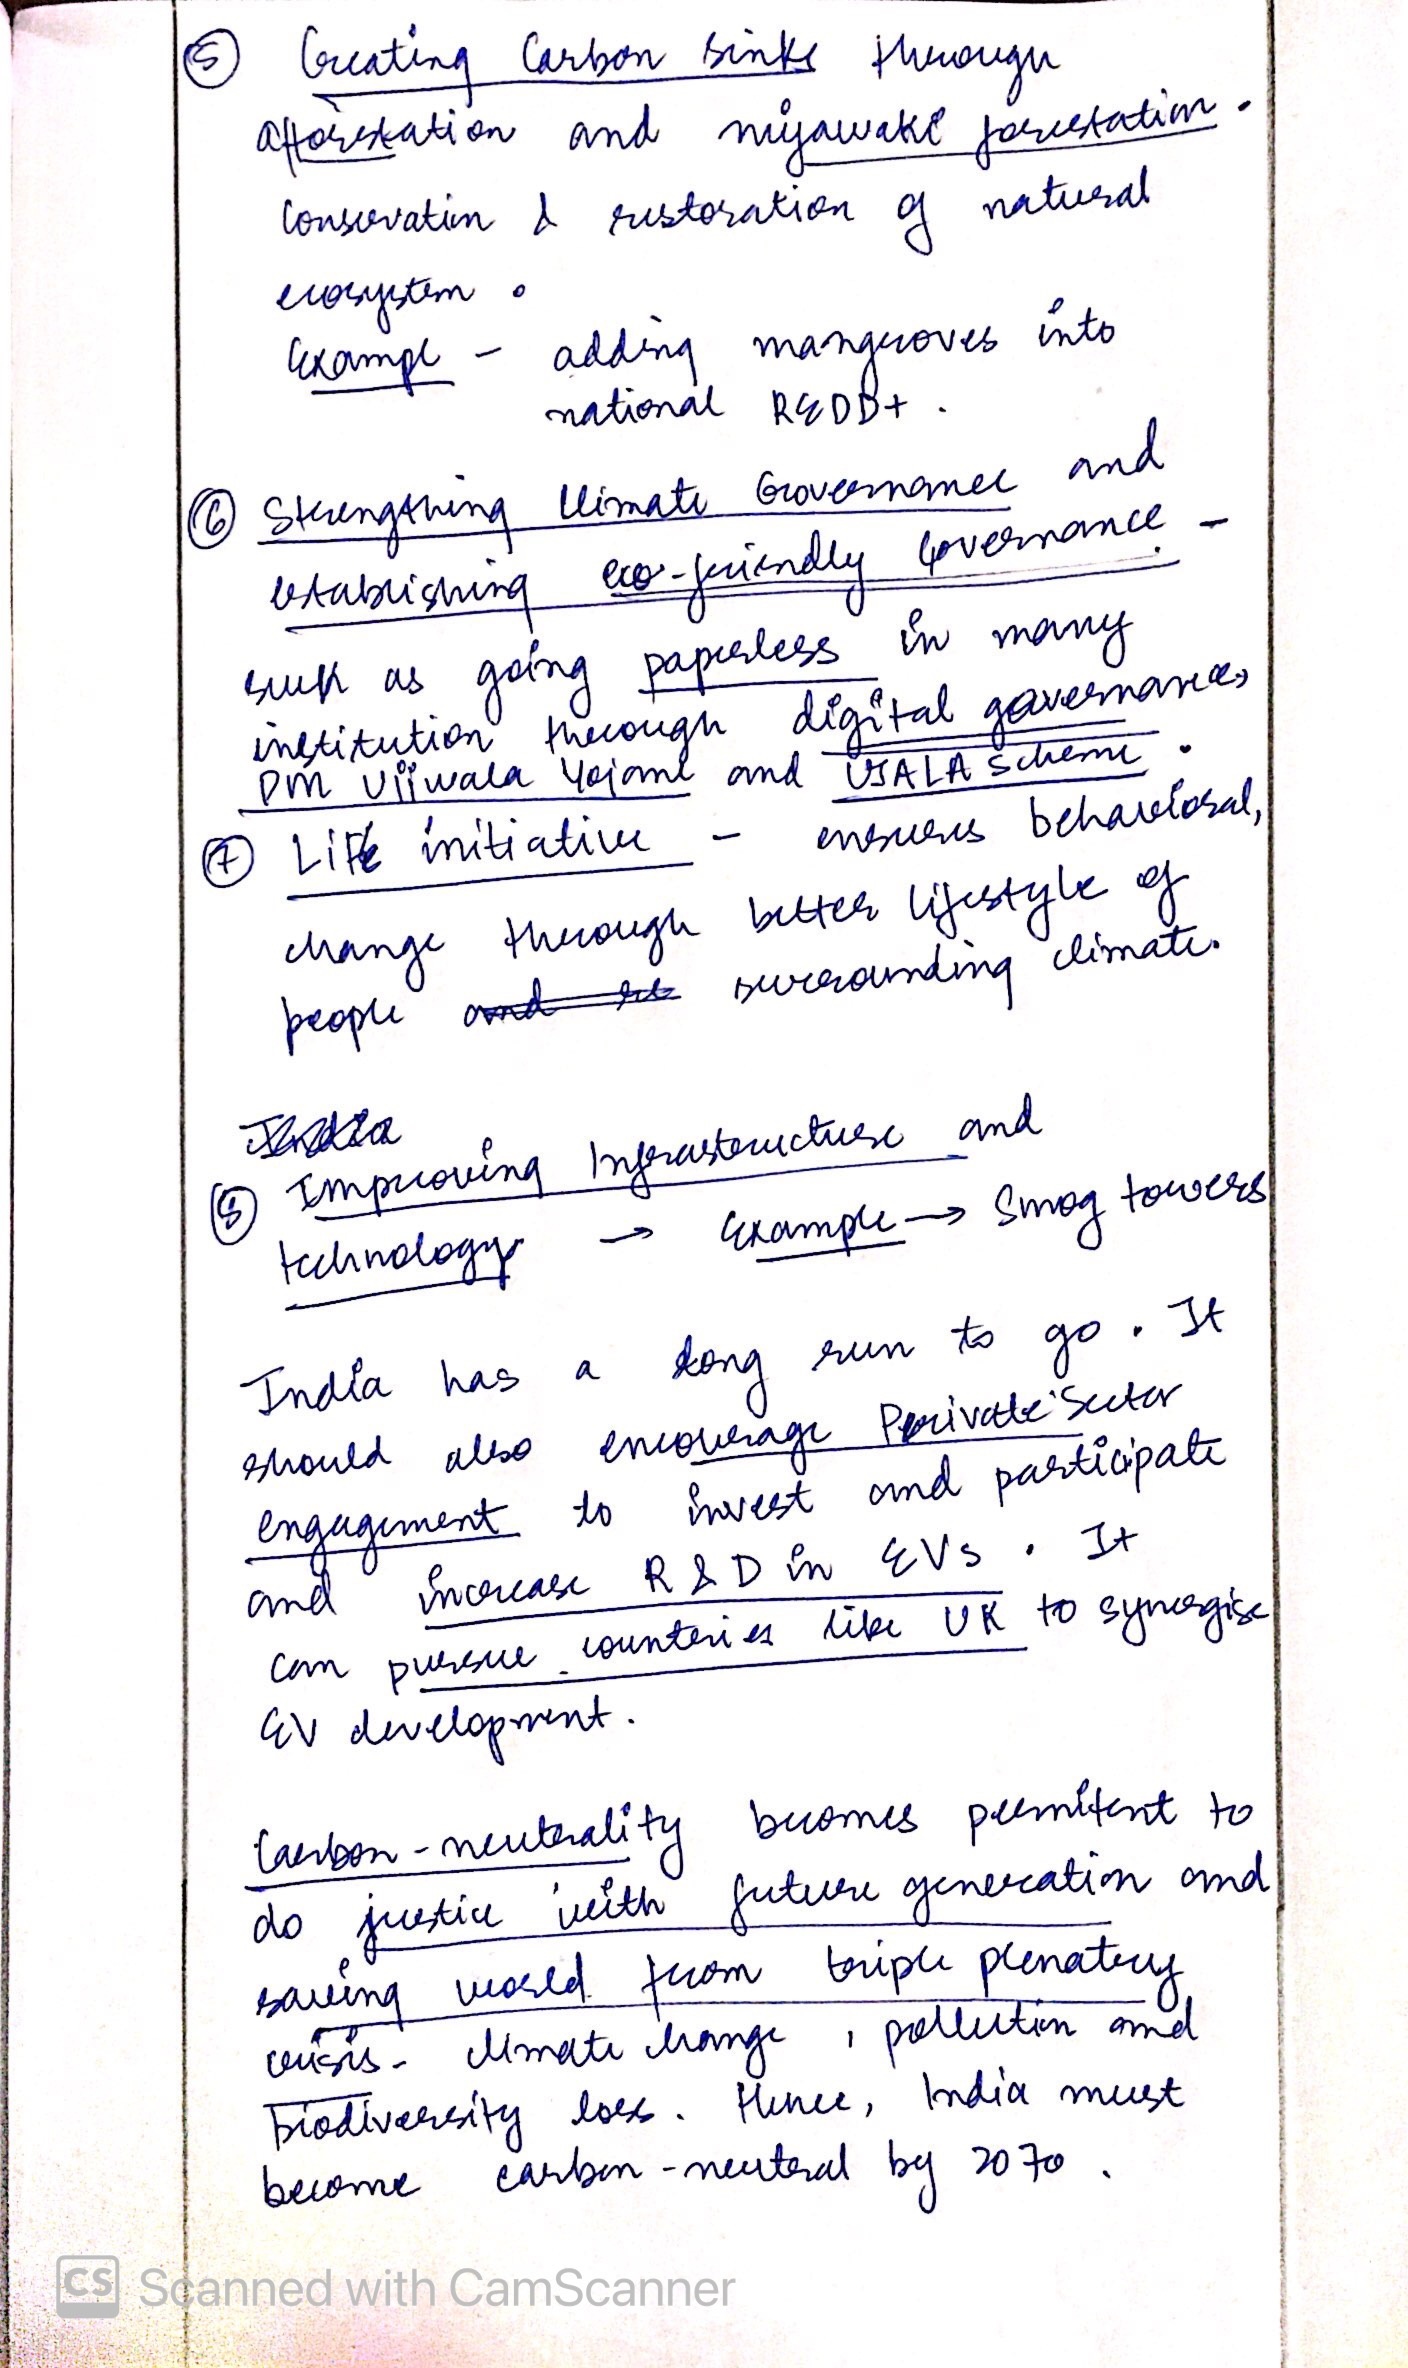 ⑤ Creating Carbon sinks through
afforestation and miyawaki forestation.
Conservation & restoration of natural
ecosystem.
Example - adding mangroves into
national REDD+.
⑥ Strengthing Climate Governance and
establishing eco-friendly Governance -
such as going paperless in many
institution through digital governance,
PM Ujjwala Yojana and UJALA Scheme.
⑦ Life initiative - ensures behavioral,
change through better lifestyle of
people surrounding climate.
India
⑧ Improving Infrastructure and
technology → Example → Smog towers
India has a long run to go. It
should also encourage Private Sector
engagement to invest and participate
and increase R & D in EVs. It
can pursue countries like UK to synergise
EV development.
Carbon-neutrality becomes
to
do justice with future generation and
saving world from triple plenatery
crisis - climate change, pollution and
biodiversity loss. Hence, India must
become carbon-neutral by 2070.
CS Scanned with CamScanner